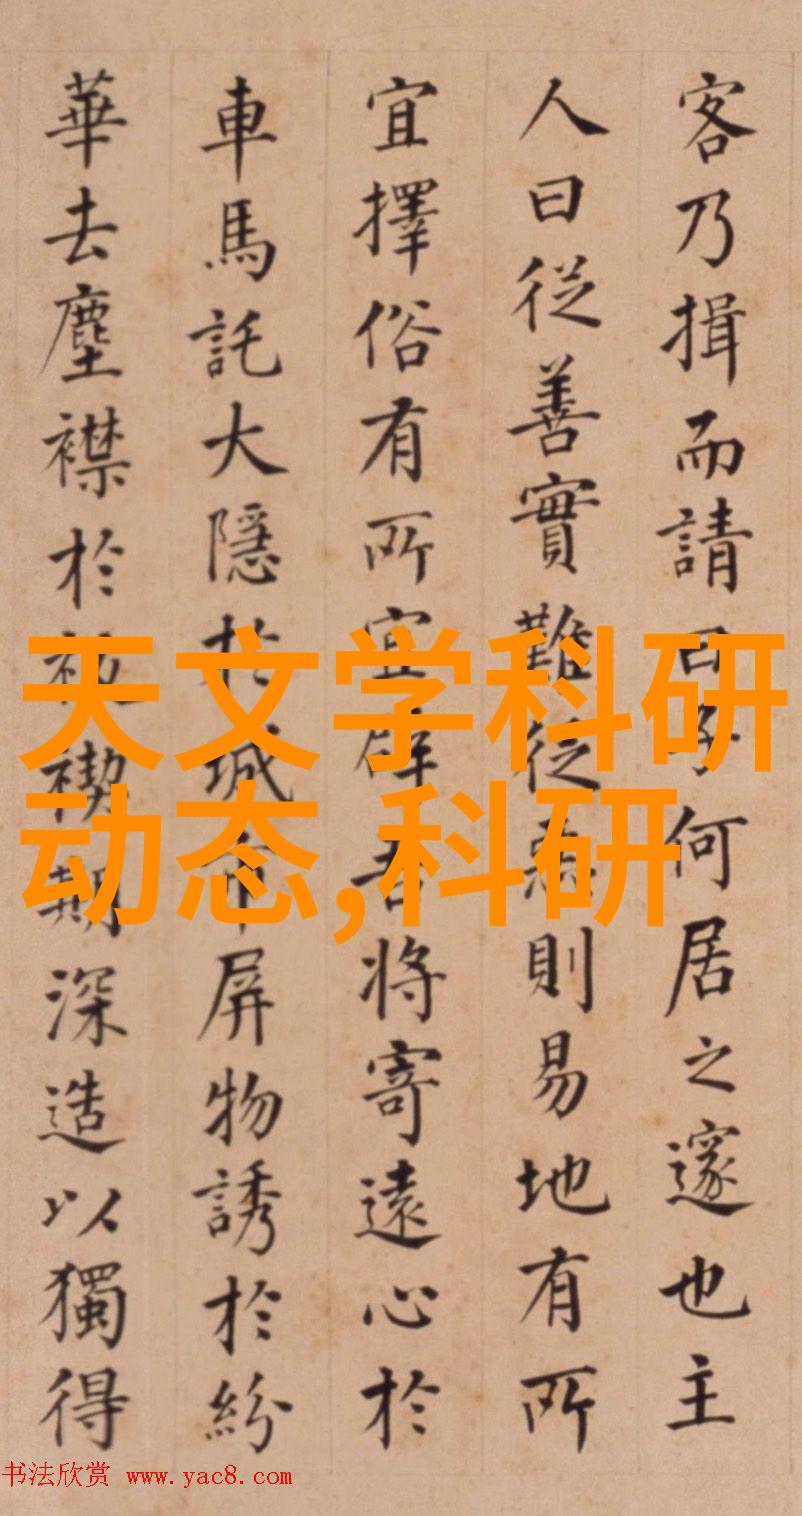 客乃揖而請曰子何居之邃也主
人曰從善實難從惡則易地有所
宜擇俗有所宜吾將寄遠心於
車馬託大隱於城市屏物誘於紛
華去塵襟於祓禊期深造以獨得
天文学科研
动态,科研
书法欣赏 www.yac8.com